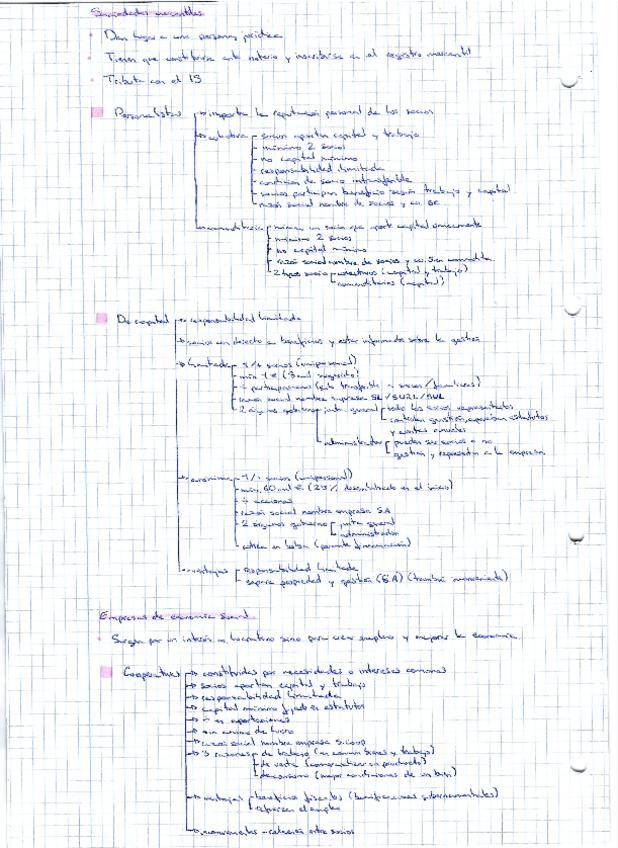 Sociedades mercantiles
Dan lugar a una persona jurídica
Tienen que constituirse ante notario y inscribirse en el registro mercantil
Tributa con el IS
Personalistas
importa la reputación personal de los socios
colectiva socios aportan capital y trabajo
mínimo 2 socios
no capital mínimo
responsabilidad ilimitada
condición de socio intransferible
socios participan beneficio según trabajo y capital
razón social nombre de socios y
comanditaria un socio que aporte capital únicamente
mínimo 2 socios
no capital mínimo
razón social nombre de socios y
2 tipos socio colectivos (capital y trabajo)
comanditarios (capital)
De capital responsabilidad limitada
socios con derecho a beneficios y estar informado sobre la gestión
limitada 1/+ socios (unipersonal)
min
÷ participaciones
razón social nombre empresa SL
2 órganos gobierno junta general todos los socios representados
controlan gestión, estatutos
y cuentas anuales
administrador pueden ser socios o no
gestión y representan a la empresa
anónima 1/+ socios (unipersonal)
min. 60 mil € (25% desembolsado en el inicio)
÷ acciones
razón social nombre empresa SA
2 órganos gobierno junta general
administrador
cotiza en bolsa (permite financiación)
ventajas responsabilidad limitada
separa propiedad y gestión (SA)
Empresas de economía social
Surgen por un interés no lucrativo sino para crear empleo y mejorar la economía.
Cooperativas constituidas por necesidades o intereses comunes
socios aportan capital y trabajo
responsabilidad limitada
capital mínimo fijado en estatutos
÷ en aportaciones
sin ánimo de lucro
razón social nombre empresa S.coop
3 de trabajo (en común bienes y trabajo)
de venta
de consumo (mejor condiciones de un bien)
ventajas beneficios fiscales
refuerzan el empleo
inconvenientes relación entre socios